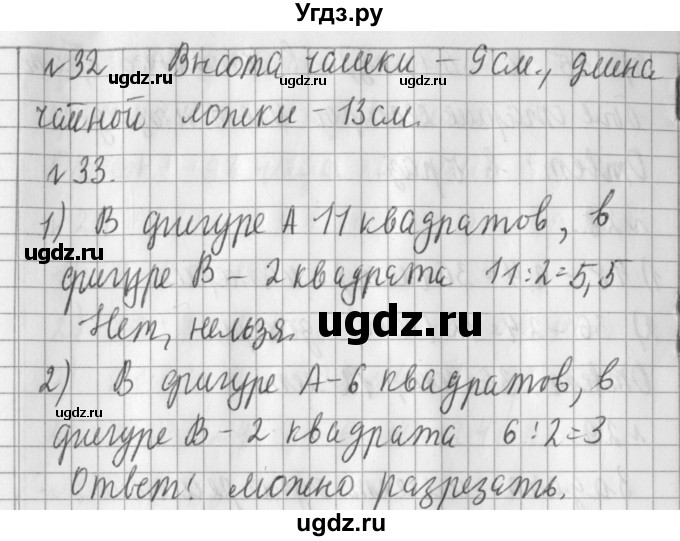 Угдз.ру
№32 Высота чашки – 9 см., длина
чайной ложки – 13 см.
№33.
1) В фигуре А 11 квадратов, в
фигуре В – 2 квадрата 11:2=5,5
Нет, нельзя.
2) В фигуре А – 6 квадратов, в
фигуре В – 2 квадрата 6:2=3
Ответ: можно разрезать.
ugdz.ru
ugdz.ru
ugdz.ru
ugdz.ru
ugdz.ru
ugdz.ru
ugdz.ru
ugdz.ru